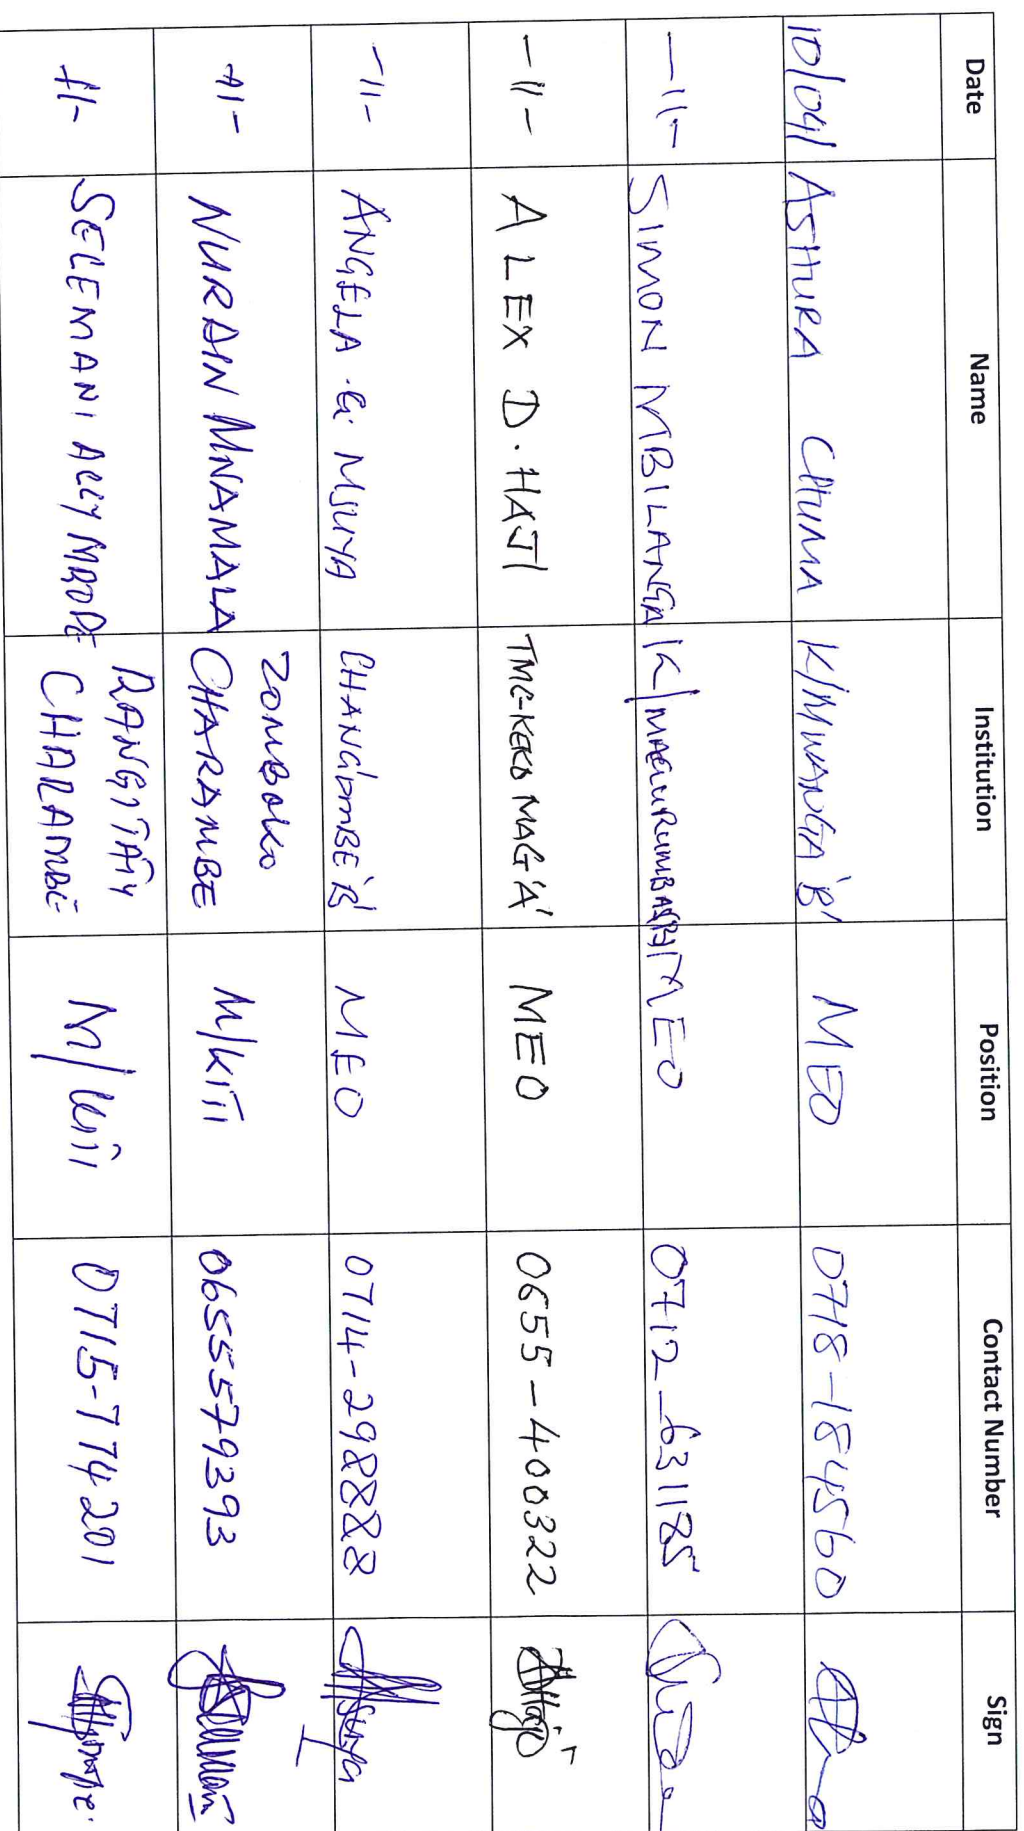 Date Name Institution Position Contact Number Sign
10/04/ ASHURA CHUMA K/MWANGA 'B' MEO 0718-184560
-11- SIMON MBILANGA K/ MEO 0712-631185
-11- ALEX D. HAJI TMC-KEKO MAG 'A' MEO 0655-400322
-11- ANGELA .G. MSUYA CHANG'OMBE 'B' MEO 0714-298888
-11- NURDIN MNAMALA ZOMBOKO
CHARAMBE M/KITI 0655579393
-11- SELEMANI ALLY MBOPE RANGI TATU
CHARAMBE M/Kiti 0715-774201